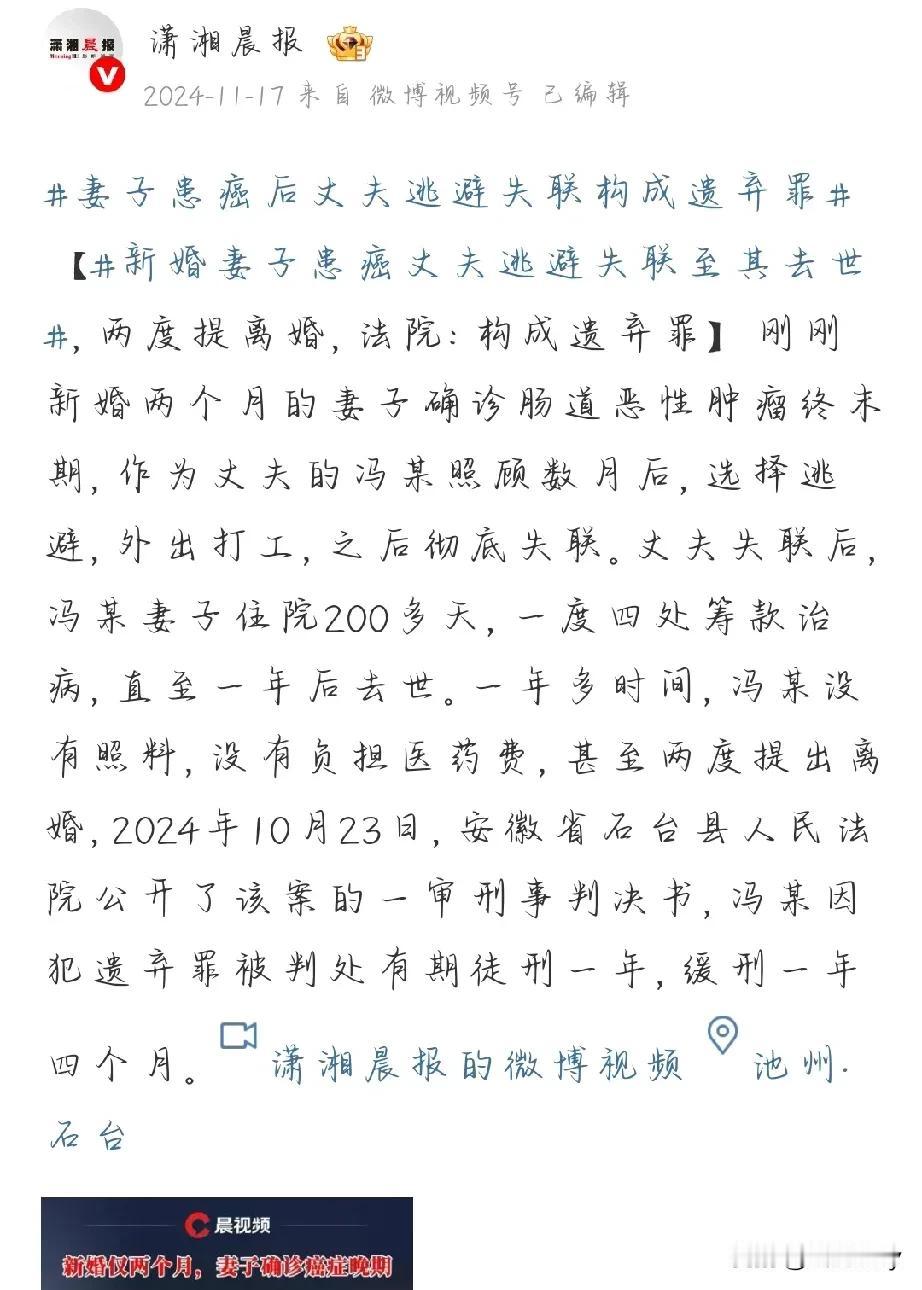 潇湘晨报
潇湘晨报
2024-11-17 来自 微博视频号 已编辑
#妻子患癌后丈夫逃避失联构成遗弃罪#
【#新婚妻子患癌丈夫逃避失联至其去世
#, 两度提离婚, 法院: 构成遗弃罪】 刚刚
新婚两个月的妻子确诊肠道恶性肿瘤终末
期, 作为丈夫的冯某照顾数月后, 选择逃
避, 外出打工, 之后彻底失联。丈夫失联后,
冯某妻子住院200多天, 一度四处筹款治
病, 直至一年后去世。一年多时间, 冯某没
有照料, 没有负担医药费, 甚至两度提出离
婚, 2024年10月23日, 安徽省石台县人民法
院公开了该案的一审刑事判决书, 冯某因
犯遗弃罪被判处有期徒刑一年, 缓刑一年
四个月。 潇湘晨报的微博视频 池州·
石台
晨视频
新婚仅两个月，妻子确诊癌症晚期